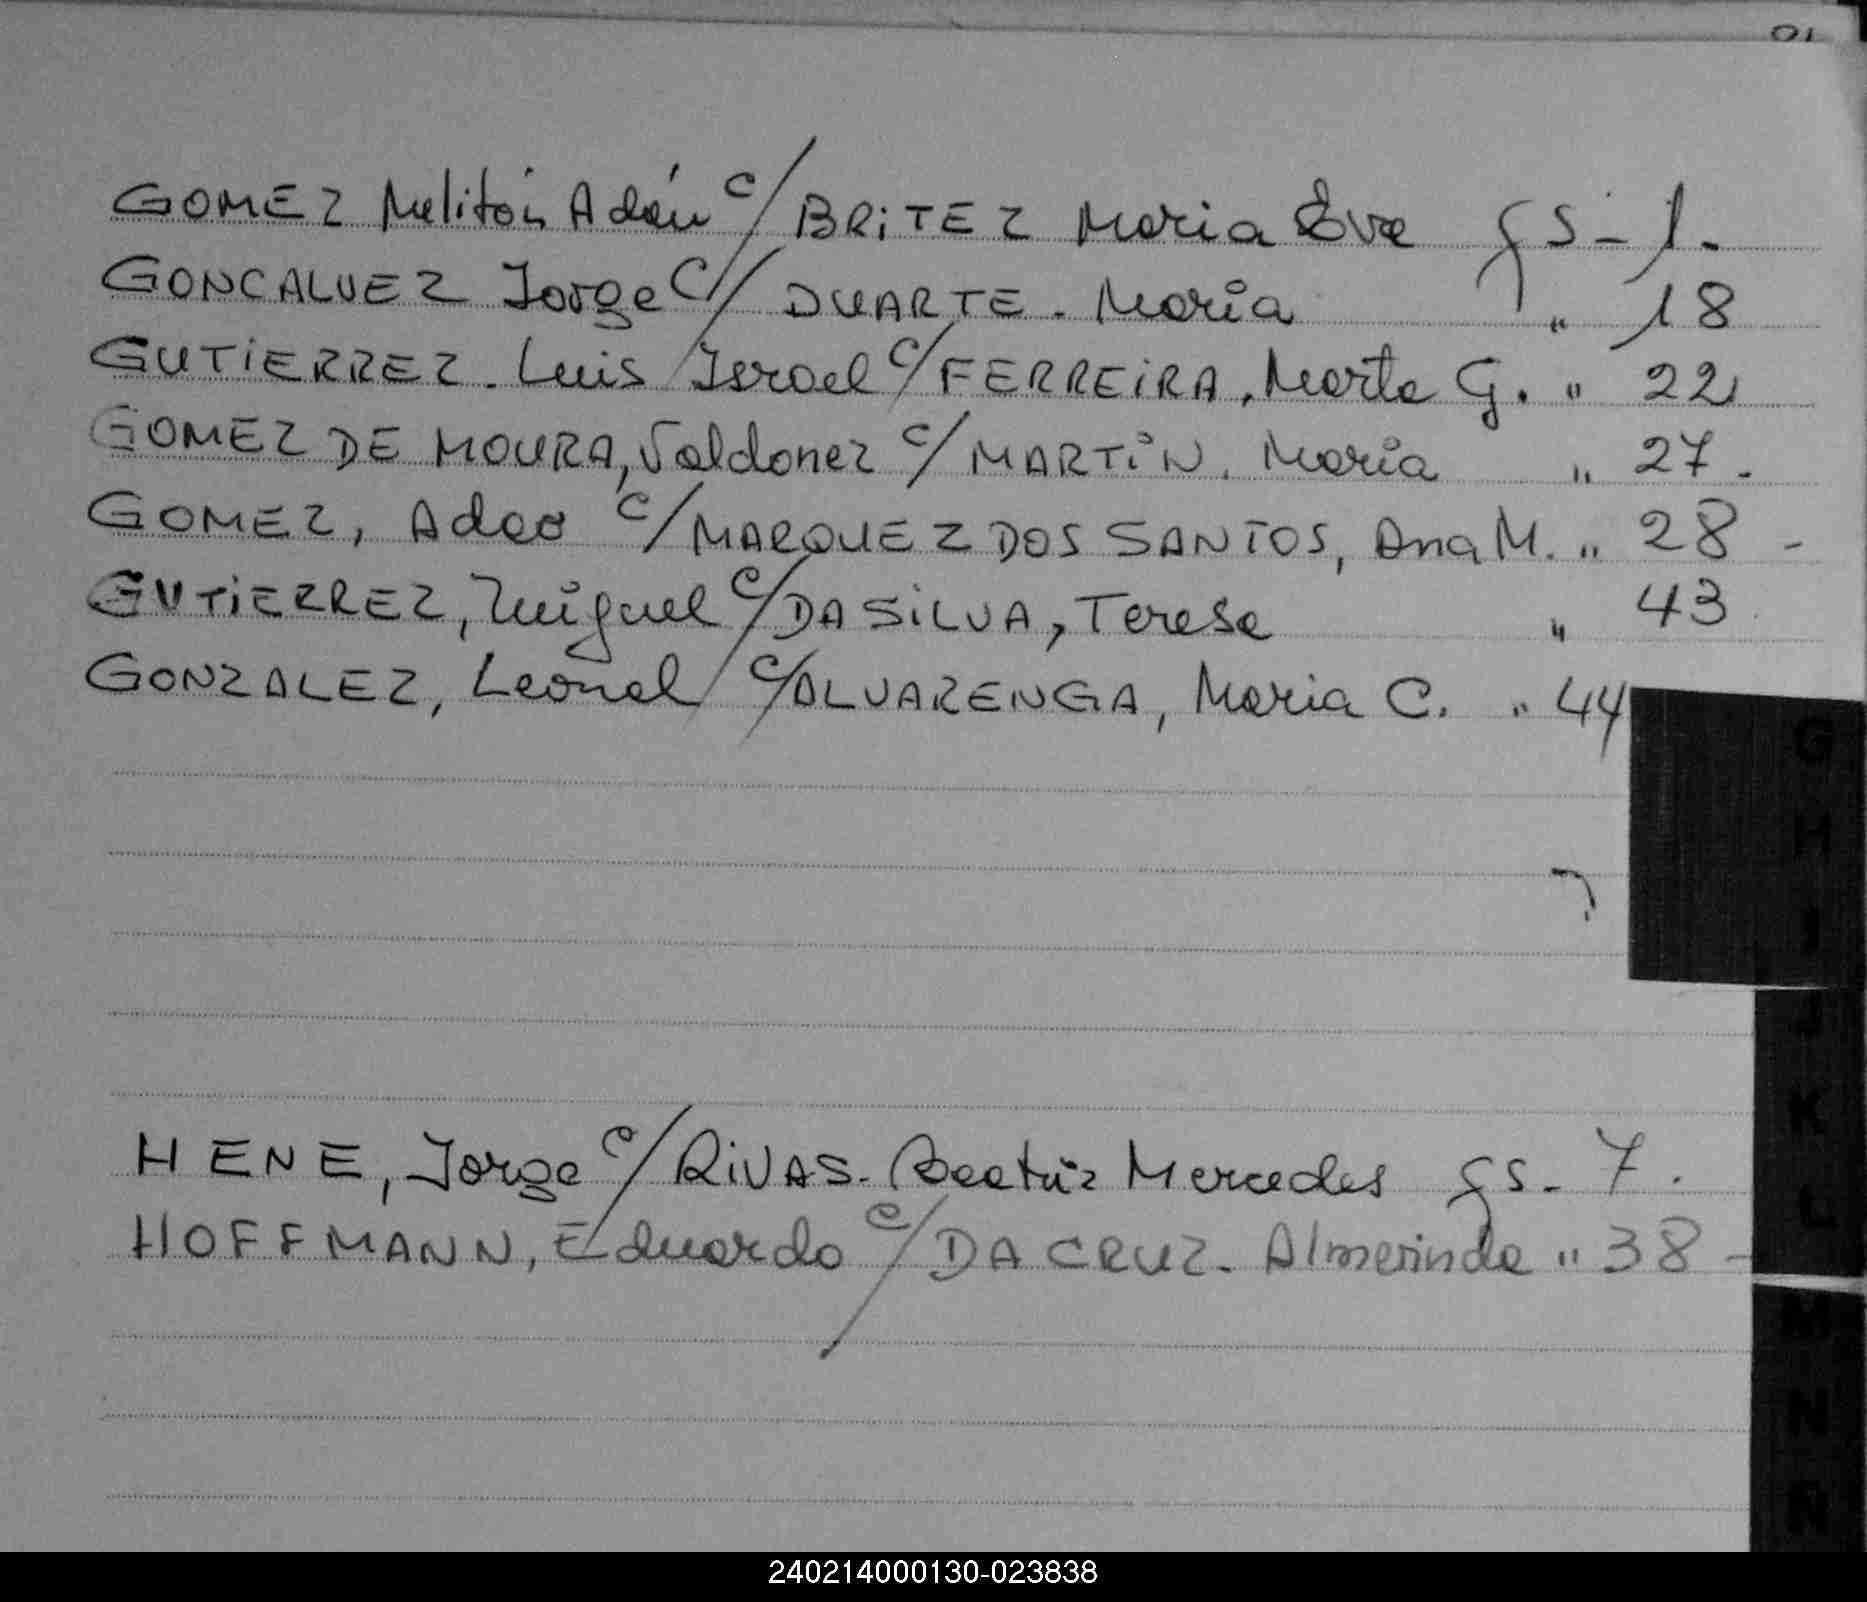 GOMEZ Melitón Adán c/ BRITEZ Maria Eva fs - 1.
GONCALVEZ Jorge c/ DUARTE. Maria " 18
GUTIERREZ. Luis Israel c/ FERREIRA, Marta G. " 22
GOMEZ DE MOURA, Valdonez c/ MARTIN. Maria " 27.
GOMEZ, Adao c/ MARQUEZ DOS SANTOS, Ana M. " 28 -
GUTIERREZ, Miguel c/ DA SILVA, Teresa " 43
GONZALEZ, Leonel c/ ALVARENGA, Maria C. " 44
G
H
I
J
HENE, Jorge c/ RIVAS. Beatriz Mercedes fs - 7.
K
L
HOFFMANN, Eduardo c/ DA CRUZ. Almerinda " 38 -
M
N
Ñ
240214000130-023838